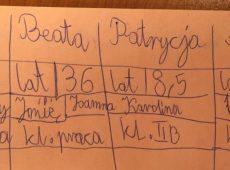 Beata Patrycja
lat 36 lat 8,5
Joanna Karolina
kl. praca kl. IIB